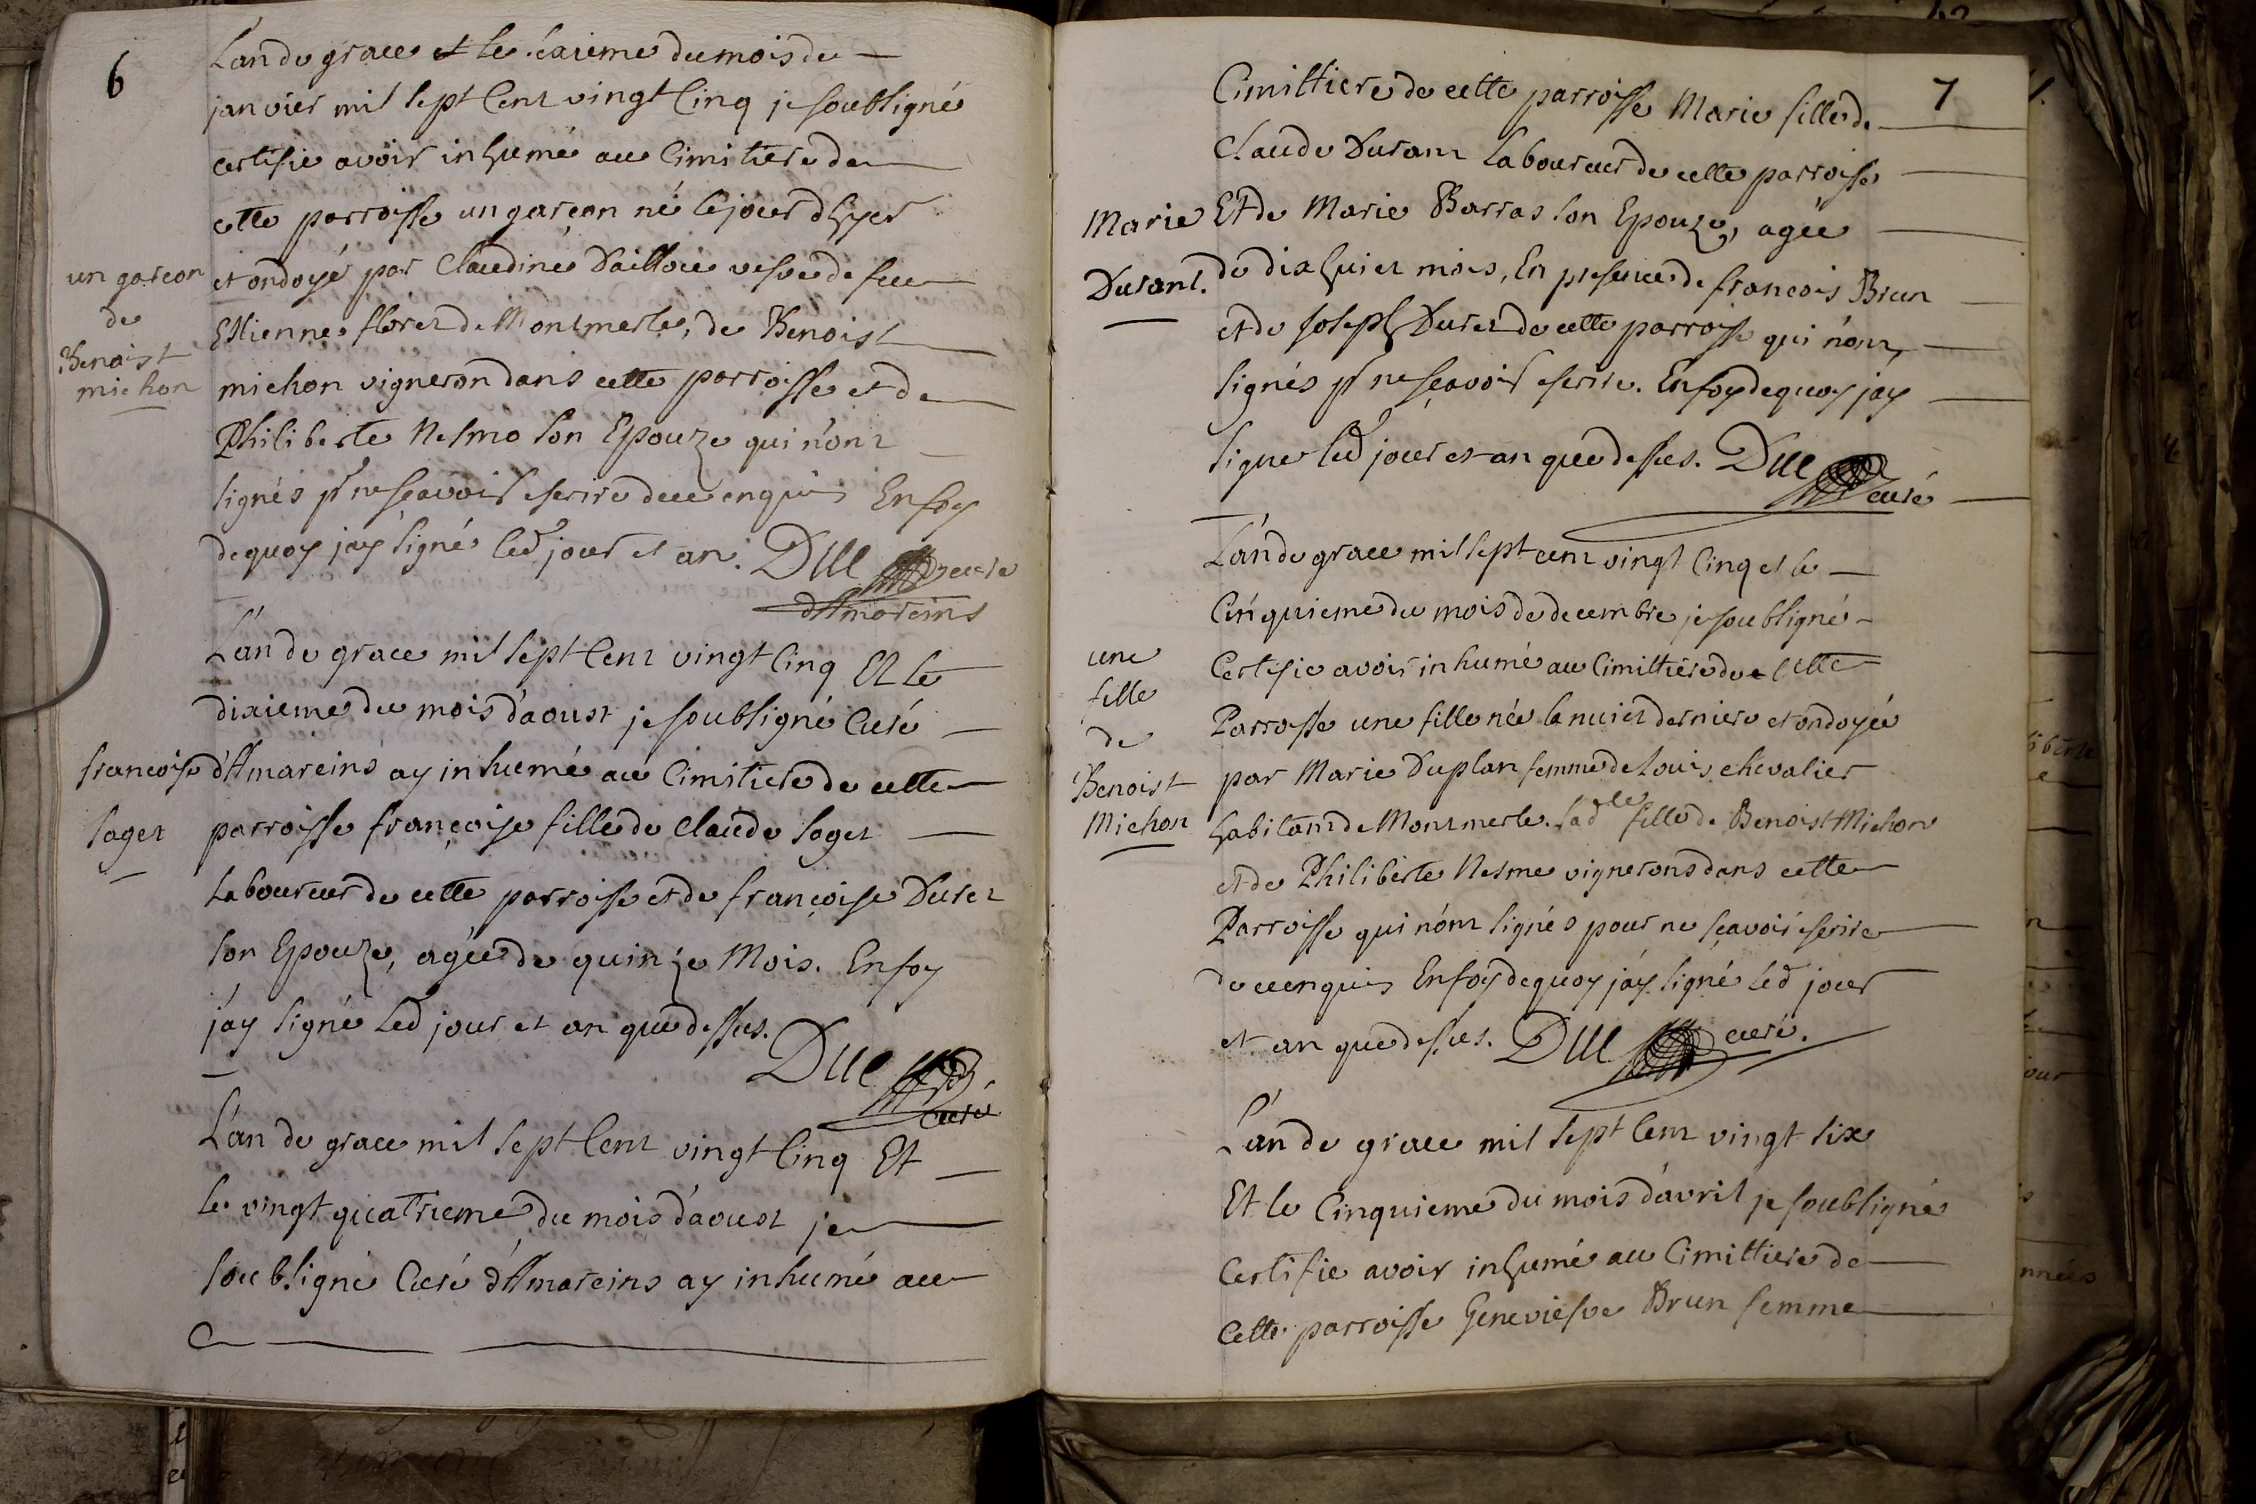 6
L'an de grace et le sixieme du mois de
janvier mil sept Cent vingt Cinq je soubsigné
certifie avoir inhumé au Cimitiere de
cette parroisse un garcon né le jour d'hyer
et ondoyé par Claudine vefve de feu
un garcon
de
Benoist
michon
Estienne floret de Montmerle, de Benoist
michon vigneron dans cette parroisse et de
Philiberte Nesme son Epouze qui n'ont
signés pr ne sçavoir escrire de ce enquis En foy
de quoy j'ay signé led jour et an. Duc curé
d'Amareins
L'an de grace mil sept Cent vingt Cinq Et le
dixieme du mois d'aoust je soubsigné Curé
francoise
soget
d'Amareins ay inhumé au Cimitiere de cette
parroisse françoise fille de Claude soget
Laboureur de cette parroisse et de françoise Duret
son Epouze, agée de quinze Mois. En foy
j'ay signé led jour et an que dessus.
Duc
curé
L'an de grace mil sept Cent vingt Cinq Et
le vingt quatrieme du mois d'aoust je
soubsigné Curé d'Amareins ay inhumé au
7
Cimittiere de cette parroisse Marie fille de
Claude Durant Laboureur de cette parroisse
Marie
Durant.
Et de Marie Barras son Epouze, agée
de dix huict mois, En presence de francois Brun
et de Joseph Duret de cette parroisse qui n'ont
signés pr ne sçavoir escrire. En foy de quoy j'ay
signe led jour et an que dessus. Duc
curé
L'an de grace mil sept cent vingt Cinq et le
Cinquieme du mois de decembre je soubsigné
une
fille
de
Benoist
Michon
Certifie avoir inhumé au Cimittiere de cette
Parroisse une fille née la nuict derniere et ondoyée
par Marie Duplan femme de Louis chevalier
habitant de Montmerle. lad te fille de Benoist Michon
et de Philiberte Nesme vignerons dans cette
Parroisse qui n'ont signés pour ne sçavoir escrire
de ce enquis En foy de quoy j'ay signé led jour
et an que dessus. Duc curé.
L'an de grace mil sept Cent vingt six
Et le Cinquieme du mois d'avril je soubsigné
Certifie avoir inhumé au Cimittiere de
Cette parroisse Geneviesve Brun femme